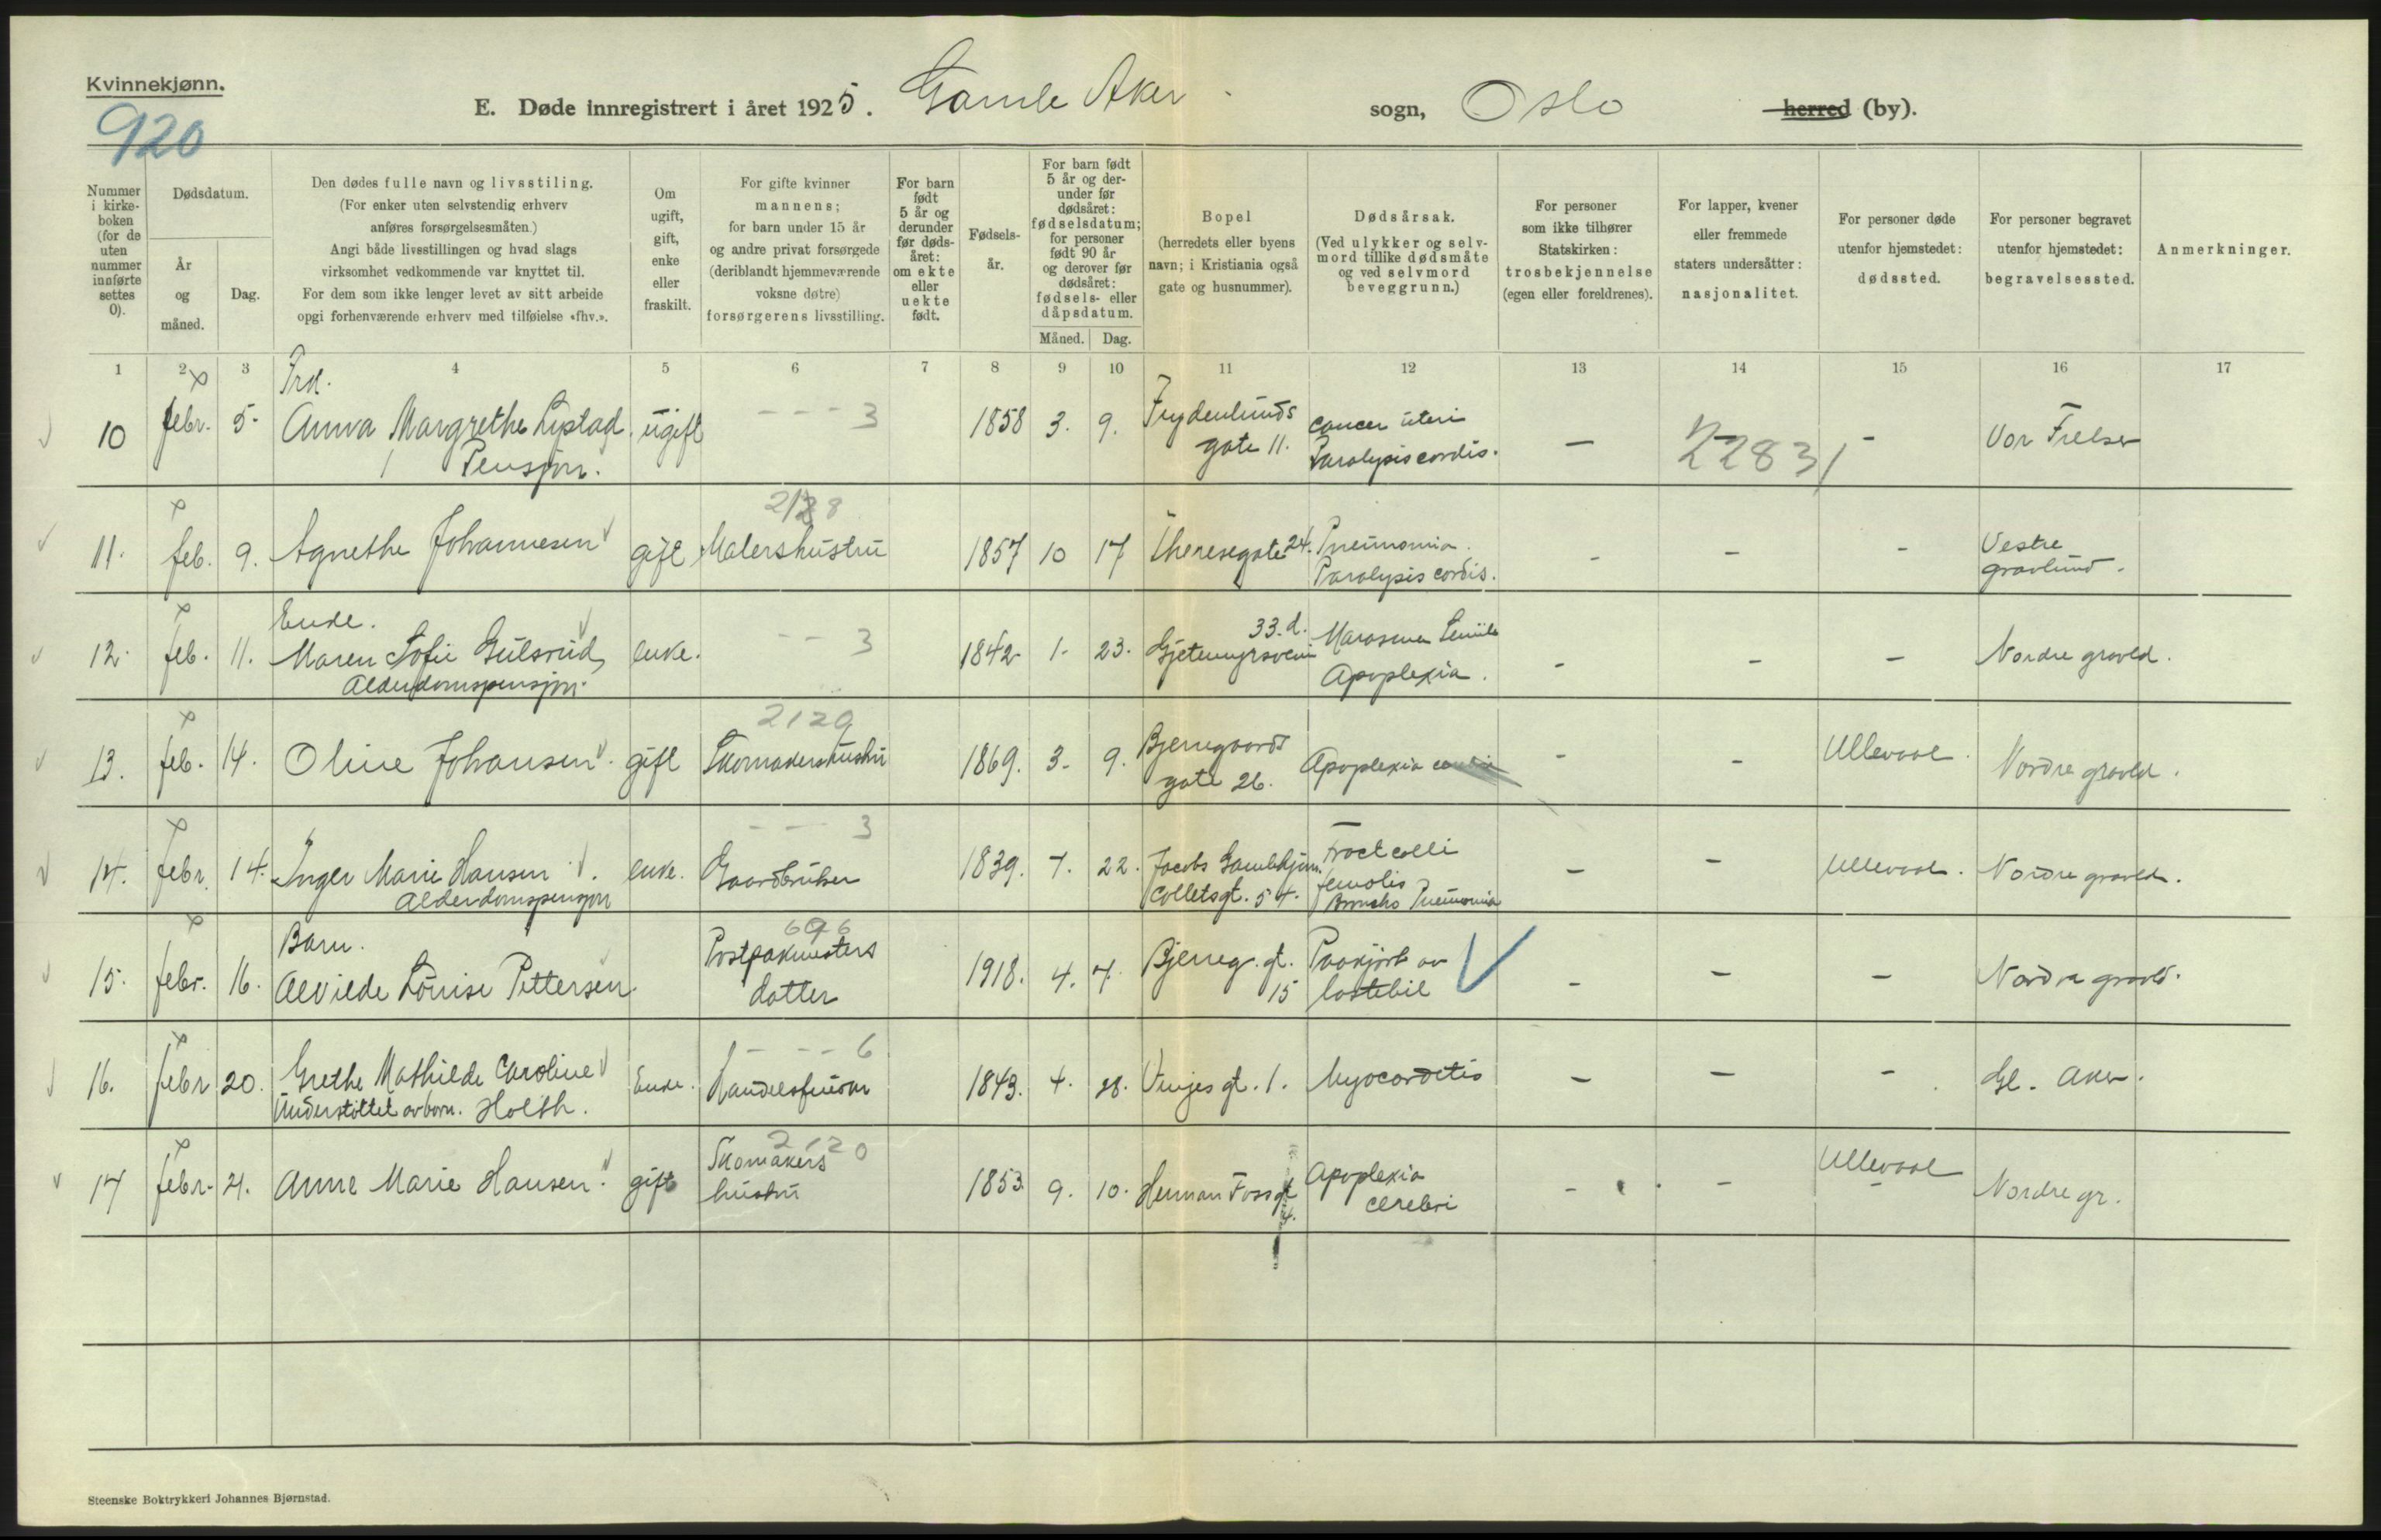 Kvinnekjønn.
920
E. Døde innregistrert i året 1925. Gamle Aker sogn, Oslo herred (by).
Nummer i kirkeboken (for de uten nummer innførte settes 0).
Dødsdatum.
År og måned.
Dag.
Den dødes fulle navn og livsstiling.
(For enker uten selvstendig erhverv
anføres forsørgelsesmåten.)
Angi både livsstillingen og hvad slags
virksomhet vedkommende var knyttet til.
For dem som ikke lenger levet av sitt arbeide
opgi forhenværende erhverv med tilføielse «fhv.».
Om ugift, gift, enke eller fraskilt.
For gifte kvinner
mannens;
for barn under 15 år
og andre privat forsørgede
(deriblandt hjemmeværende
voksne døtre)
forsørgerens livsstilling.
For barn født 5 år og derunder før dødsåret: om ekte eller uekte født.
Fødselsår.
For barn født 5 år og derunder før dødsåret: fødselsdatum; for personer født 90 år og derover før dødsåret: fødsels- eller dåpsdatum.
Måned. Dag.
Bopel
(herredets eller byens
navn; i Kristiania også
gate og husnummer).
Dødsårsak.
(Ved ulykker og selvmord tillike dødsmåte og ved selvmord beveggrunn.)
For personer
som ikke tilhører
Statskirken:
trosbekjennelse
(egen eller foreldrenes).
For lapper, kvener
eller fremmede
staters undersåtter:
nasjonalitet.
For personer døde
utenfor hjemstedet:
dødssted.
For personer begravet
utenfor hjemstedet:
begravelsessted.
Anmerkninger.
1 2 3 4 5 6 7 8 9 10 11 12 13 14 15 16 17
10 febr. 5. Anna Margrethe Lystad. Pensjon. ugift - - - 3 1858 3. 9. Frydenlunds gate 11. cancer uteri Paralysis cordis. - 22831 - Vor Frelser
11. feb. 9. Agnethe Johannesen gift 2128 Malershustru 1857 10 17 Theresegate 24. Pneumonia. Paralysis cordis. - - - Vestre gravlund.
12. feb. 11. Enke. Maren Sofie Gulsrud, Alderdomspensjon. enke. - - 3 1842 1. 23. Gjetemyrsvein 33.d. Marasmus Senilis Apoplexia. - - - Nordre gravld.
13. feb. 14. Oline Johansen. gift 2129 Skomakershustru 1869. 3. 9. Bjerregaards gate 26. Apoplexia - - Ullevaal. Nordre gravld.
14. febr. 14. Inger Marie Hansen. Alderdomspensjon enke. - - 3 Gaardbruker 1839. 7. 22. Jacobs Gamlehjem. Colletsgt. 54. Fract colli femoris Broncho Pneumonia - - Ullevaal. Nordre gravld.
15. febr. 16. Barn. Alvilde Louise Pettersen. 696 Postpakmesters datter 1918. 4. 7. Bjerreg. gt. 15 Paakjørt av lastebil - - - Nordre gravld.
16. febr 20. Grethe Mathilde Caroline Holth. Understøttet av barn. Enke. - - - 6 1843. 4. 28. Vinjes gt. 1. Myocarditis - - - Gl. Aker.
17 febr. 21. Anne Marie Hansen. gift 2120 Skomakers hustru 1853 9. 10. Herman Foss gt 4. Apoplexia cerebri - - Ullevaal - Nordre gr.
Steenske Boktrykkeri Johannes Bjørnstad.